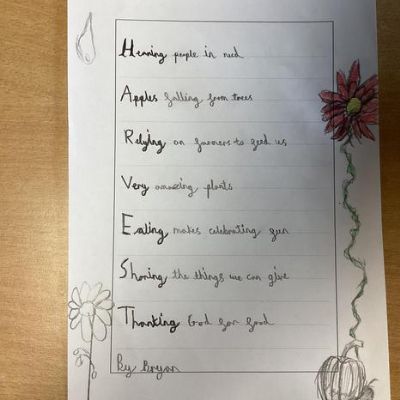 Hearing people in need
Apples falling from trees
Relying on farmers to feed us
Very amazing plants
Eating makes celebrating fun
Sharing the things we can give
Thanking God for food
By Bryan